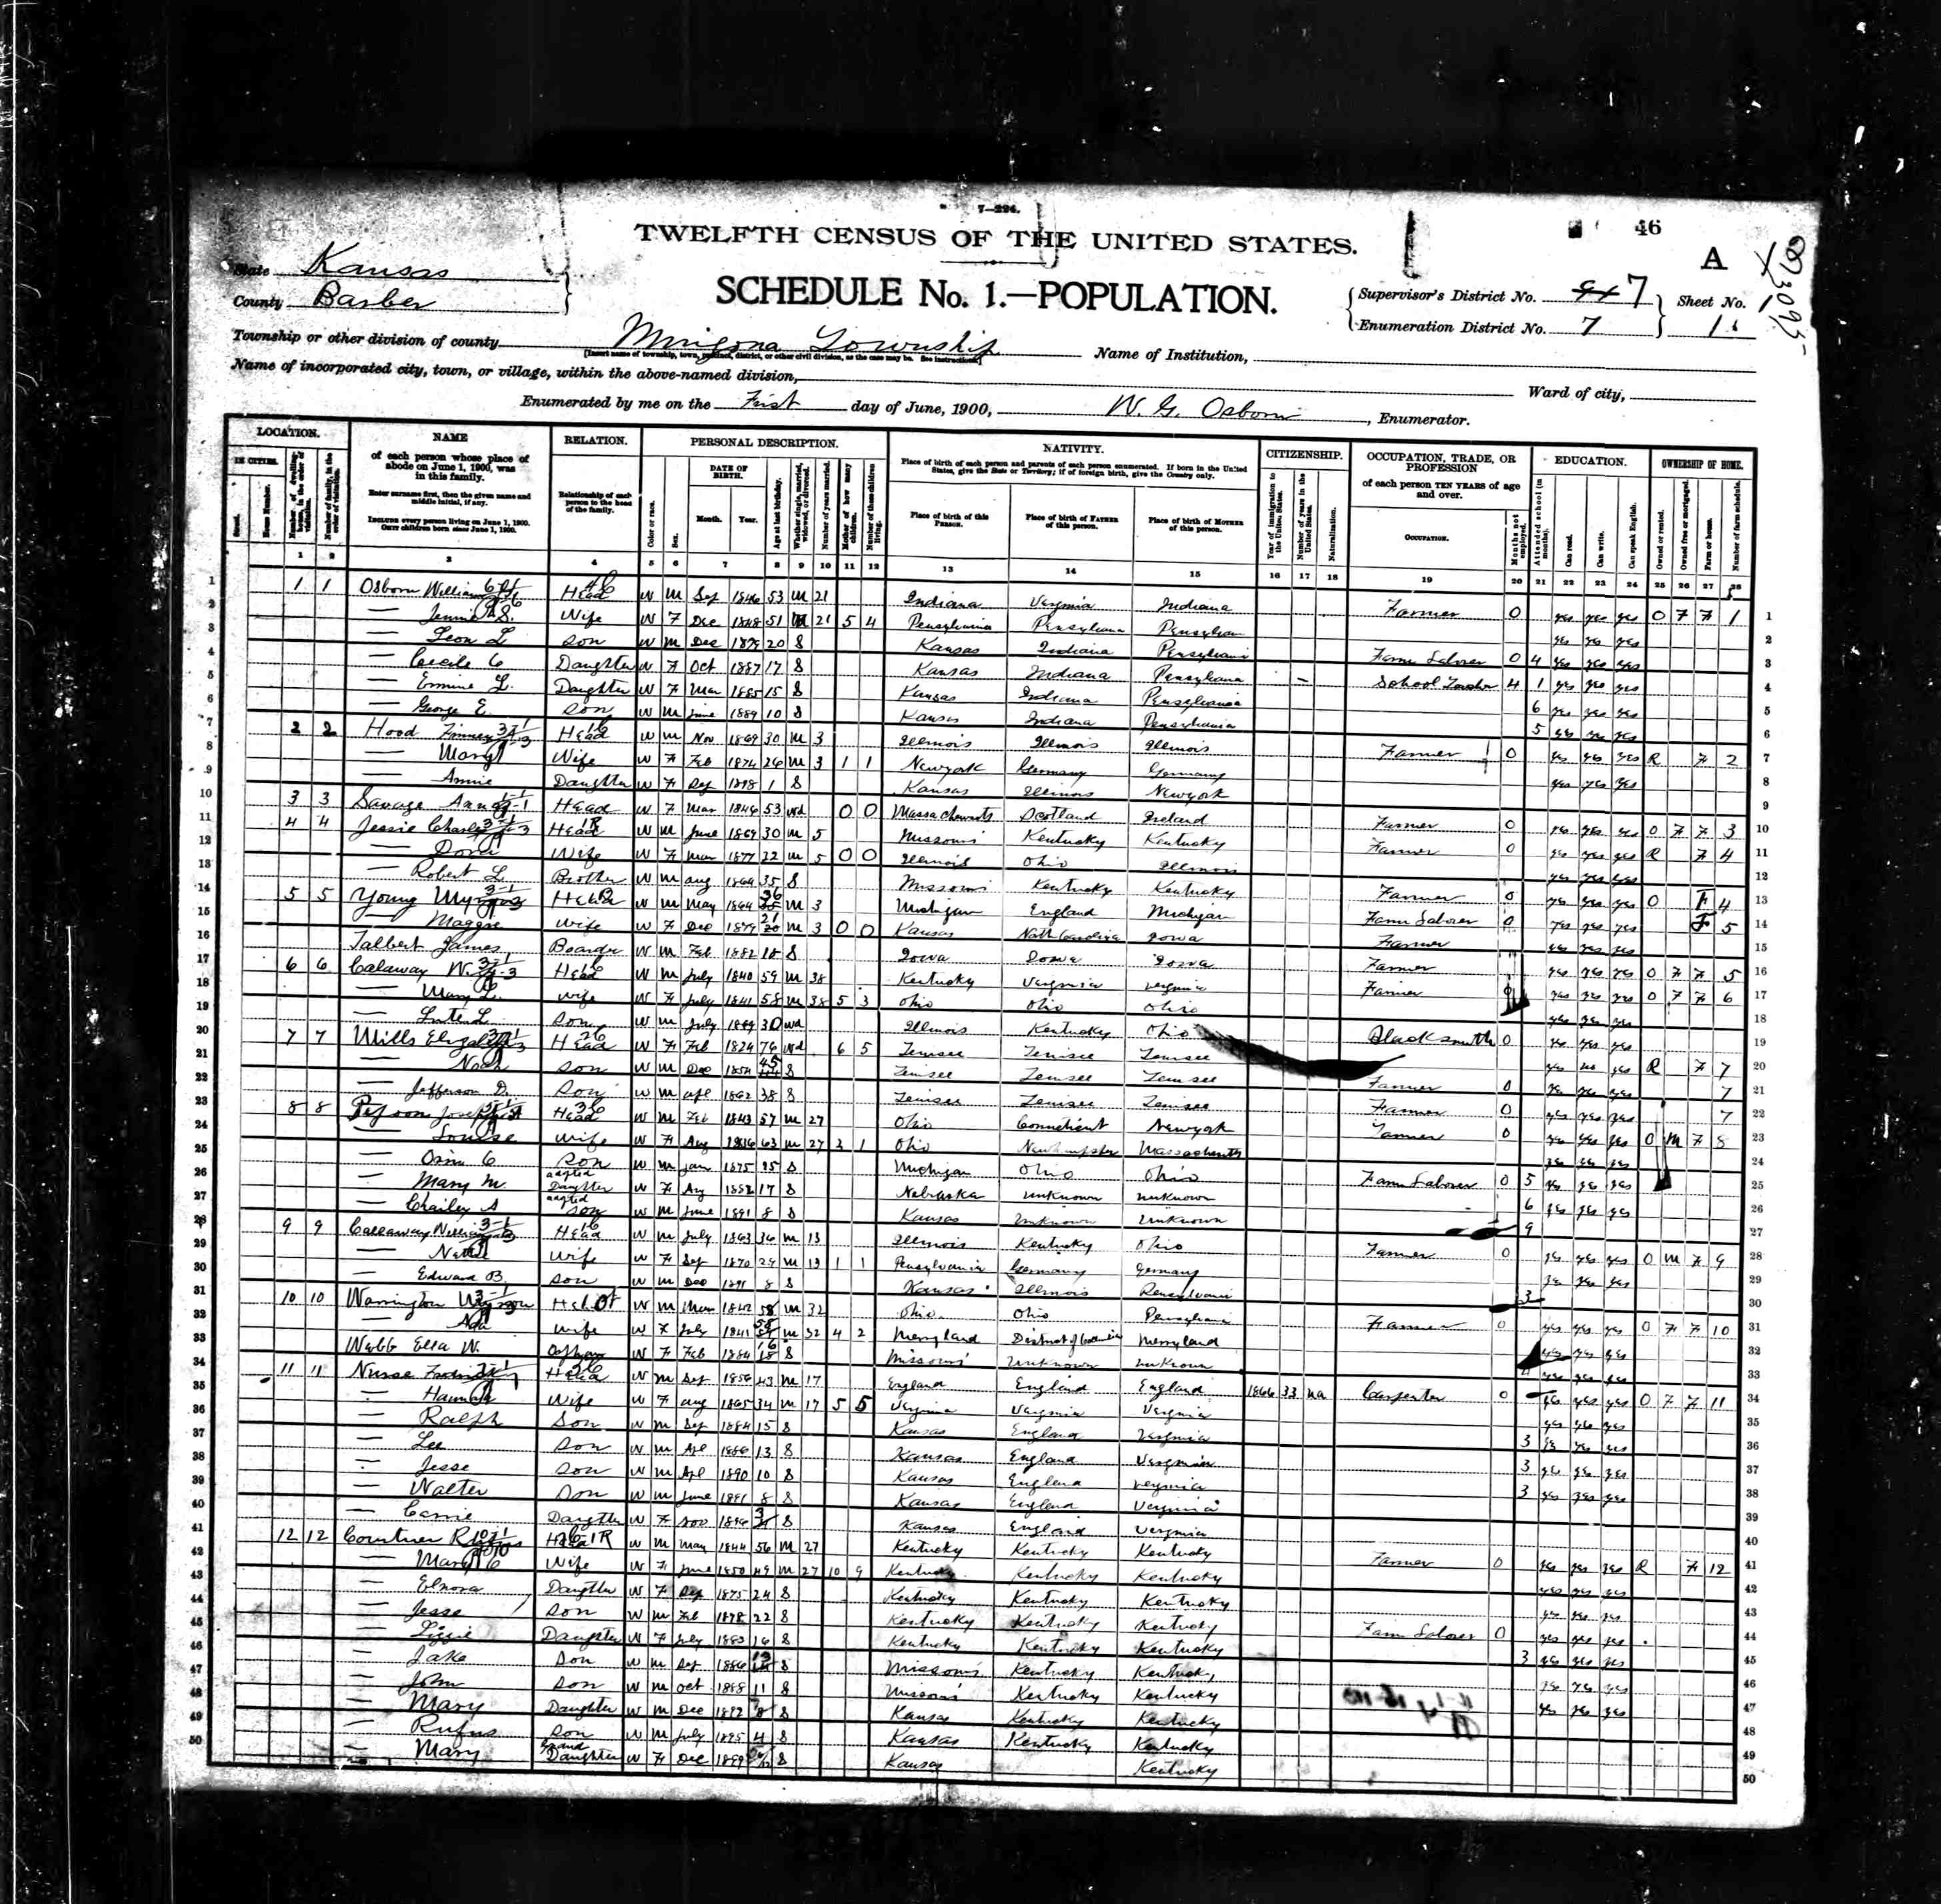 7—224.
46
TWELFTH CENSUS OF THE UNITED STATES.
A
State Kansas
County Barber
SCHEDULE No. 1.—POPULATION.
Supervisor's District No. 7
Sheet No.
Enumeration District No. 7
1
Township or other division of county Mingona Township
[Insert name of township, town, precinct, district, or other civil division, as the case may be. See instructions.]
Name of Institution,
Name of incorporated city, town, or village, within the above-named division,
Ward of city,
Enumerated by me on the First day of June, 1900, W. G. Osborn, Enumerator.
LOCATION. NAME RELATION. PERSONAL DESCRIPTION. NATIVITY. CITIZENSHIP. OCCUPATION, TRADE, OR PROFESSION EDUCATION. OWNERSHIP OF HOME.
IN CITIES.
of each person whose place of abode on June 1, 1900, was in this family.
Enter surname first, then the given name and middle initial, if any.
INCLUDE every person living on June 1, 1900. OMIT children born since June 1, 1900.
Relationship of each person to the head of the family.
DATE OF BIRTH.
Month. Year.
Place of birth of each person and parents of each person enumerated. If born in the United States, give the State or Territory; if of foreign birth, give the Country only.
Place of birth of this PERSON. Place of birth of FATHER of this person. Place of birth of MOTHER of this person.
of each person TEN YEARS of age and over.
OCCUPATION.
1 2 3 4 5 6 7 8 9 10 11 12 13 14 15 16 17 18 19 20 21 22 23 24 25 26 27 28
1 1 1 Osborn William Head W M Sep 1846 53 M 21 Indiana Verginia Indiana Farmer 0 yes yes yes O F F 1
2 — Wife W F Dec 1848 51 M 21 5 4 Pensylvania Pensylvana Pensylvan yes yes yes
3 — Leon L Son W M Dec 1879 20 S Kansas Indiana Pensylvani Farm Laborer 0 4 yes yes yes
4 — Cecile C Daughter W F Oct 17 S Kansas Indiana Pensylvana School Teacher 4 1 yes yes yes
5 — Ermine L. Daughter W F Mar 1885 15 S Kansas Indiana Pensylvania 6 yes yes yes
6 — George E. Son W M June 1889 10 S Kansas Indiana Pensylvania 5 yes yes yes
7 2 2 Hood Head W M Nov 1869 30 M 3 Illinois Illinois Illinois Farmer 0 yes yes yes R F 2
8 — Mary Wife W F Feb 1874 26 M 3 1 1 Newyork Germany Germany yes yes yes
9 — Annie Daughter W F Sep 1898 1 S Kansas Illinois Newyork
10 3 3 Savage Anna Head W F Mar 1846 53 wd 0 0 Massachusets Scotland Ireland Farmer 0 yes yes yes O F F 3
11 4 4 Jessie Charley Head W M June 1869 30 M 5 Missouri Kentucky Kentucky Farmer 0 yes yes yes R F 4
12 — Dora Wife W F Mar 1877 22 M 5 0 0 Illinois Ohio Illinois yes yes yes
13 — Robert L Brother W M Aug 1864 35 S Missouri Kentucky Kentucky Farmer 0 yes yes yes O F 4
14 5 5 Young W M May 1864 36 M 3 Michigan England Michigan Farm Laborer 0 yes yes yes F 5
15 — Maggie Wife W F Dec 1879 M 3 0 0 Kansas North Carolina Iowa Farmer yes yes yes
16 Talbert James Boarder W M Feb 1882 18 S Iowa Iowa Iowa Farmer yes yes yes O F F 5
17 6 6 Calaway W. Head W M July 1840 59 M 38 Kentucky Verginia Verginia Farmer yes yes yes O F F 6
18 — Mary L. Wife W F July 1841 58 M 38 5 3 Ohio Ohio Ohio yes yes yes
19 — Son W M July 1869 30 wd Illinois Kentucky Ohio Blacksmith 0 yes yes yes
20 7 7 Mills Elizabeth Head W F Feb 1824 76 wd 6 5 Tenisee Tenisee Tenisee yes no yes R F 7
21 — Son W M Dec 1854 45 S Tenisee Tenisee Tenisee Farmer 0 yes yes yes 7
22 — Jefferson D. Son W M Apl 1862 38 S Tenisee Tenisee Tenisee Farmer 0 yes yes yes 7
23 8 8 Joseph Head W M Feb 1843 57 M 27 Ohio Conneticut Newyork Farmer 0 yes yes yes O M F 8
24 — Louise Wife W F Aug 1836 63 M 27 3 1 Ohio Newhampster Massachusetts yes yes yes
25 — Orin C Son W M Jan 1875 25 S Michigan Ohio Ohio Farm Laborer 0 5 yes yes yes
26 — Mary M. adopted Daughter W F Aug 1882 17 S Nebraska unknown unknown 6 yes yes yes
27 — Charley A adopted Son W M June 1891 8 S Kansas Unknown Unknown 9
28 9 9 Callaway William Head W M July 1863 36 M 13 Illinois Kentucky Ohio Farmer 0 yes yes yes O M F 9
29 — Wife W F Sep 1870 29 M 13 1 1 Pensylvania Germany Germany yes yes yes
30 — Edward B. Son W M Dec 1891 8 S Kansas Illinois Pensylvani 3
31 10 10 Warrington Head W M Mar 1842 58 M 32 Ohio Ohio Pensylvania Farmer 0 yes yes yes O F F 10
32 — Ada Wife W F July 1841 58 M 32 4 2 Merryland District of Columbia Merryland yes yes yes
33 Webb Ella W. W F Feb 1884 16 S Missouri Unknown unknown yes yes yes
34 11 11 Nurse Head W M Sep 1856 43 M 17 England England England 1866 33 na Carpenter 0 yes yes yes O F F 11
35 — Hannah Wife W F Aug 1865 34 M 17 5 5 Verginia Verginia Verginia yes yes yes
36 — Ralph Son W M Sep 1884 15 S Kansas England Verginia 3 yes yes yes
37 — Lee Son W M Apl 1886 13 S Kansas England Verginia 3 yes yes yes
38 — Jesse Son W M Apl 1890 10 S Kansas England Verginia 3 yes yes yes
39 — Walter Son W M June 1891 8 S Kansas England Verginia
40 — Carrie Daughter W F Nov 1896 3 S Kansas England Verginia
41 12 12 Courtner Head W M May 1844 56 M 27 Kentucky Kentucky Kentucky Farmer 0 yes yes yes R F 12
42 — Mary C Wife W F June 1850 49 M 27 10 9 Kentucky Kentucky Kentucky yes yes yes
43 — Elnora Daughter W F Sep 1875 24 S Kentucky Kentucky Kentucky yes yes yes
44 — Jesse Son W M Feb 1878 22 S Kentucky Kentucky Kentucky Farm Laborer 0 yes yes yes
45 — Lizzie Daughter W F July 1883 16 S Kentucky Kentucky Kentucky 3 yes yes yes
46 — Jake Son W M Sep 1886 13 S Missouri Kentucky Kentucky yes yes yes
47 — John Son W M Oct 1888 11 S Missouri Kentucky Kentucky yes yes yes
48 — Mary Daughter W F Dec 1892 S Kansas Kentucky Kentucky
49 — Rufus Son W M July 1895 4 S Kansas Kentucky Kentucky
50 — Mary Grand Daughter W F Dec S Kansas Kentucky